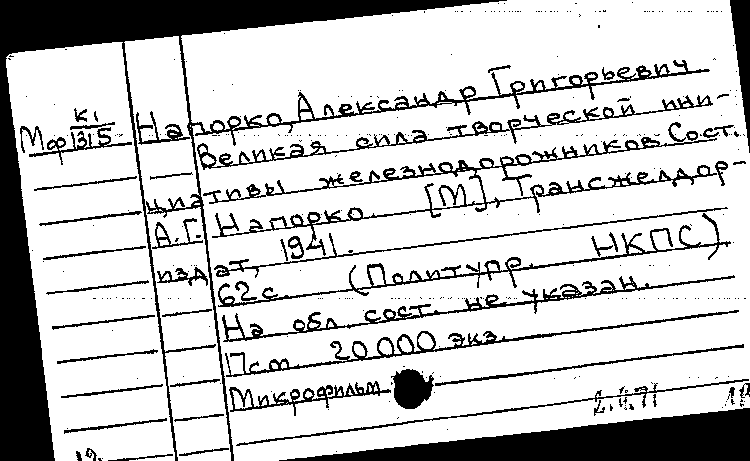 Мф К1/1315
Напорко, Александр Григорьевич
Великая сила творческой ини-
циативы железнодорожников. Сост.
А.Г. Напорко. [М.], Трансжелдор-
издат, 1941.
62 с. (Политупр. НКПС)
На обл. сост. не указан.
20000 экз.
Микрофильм